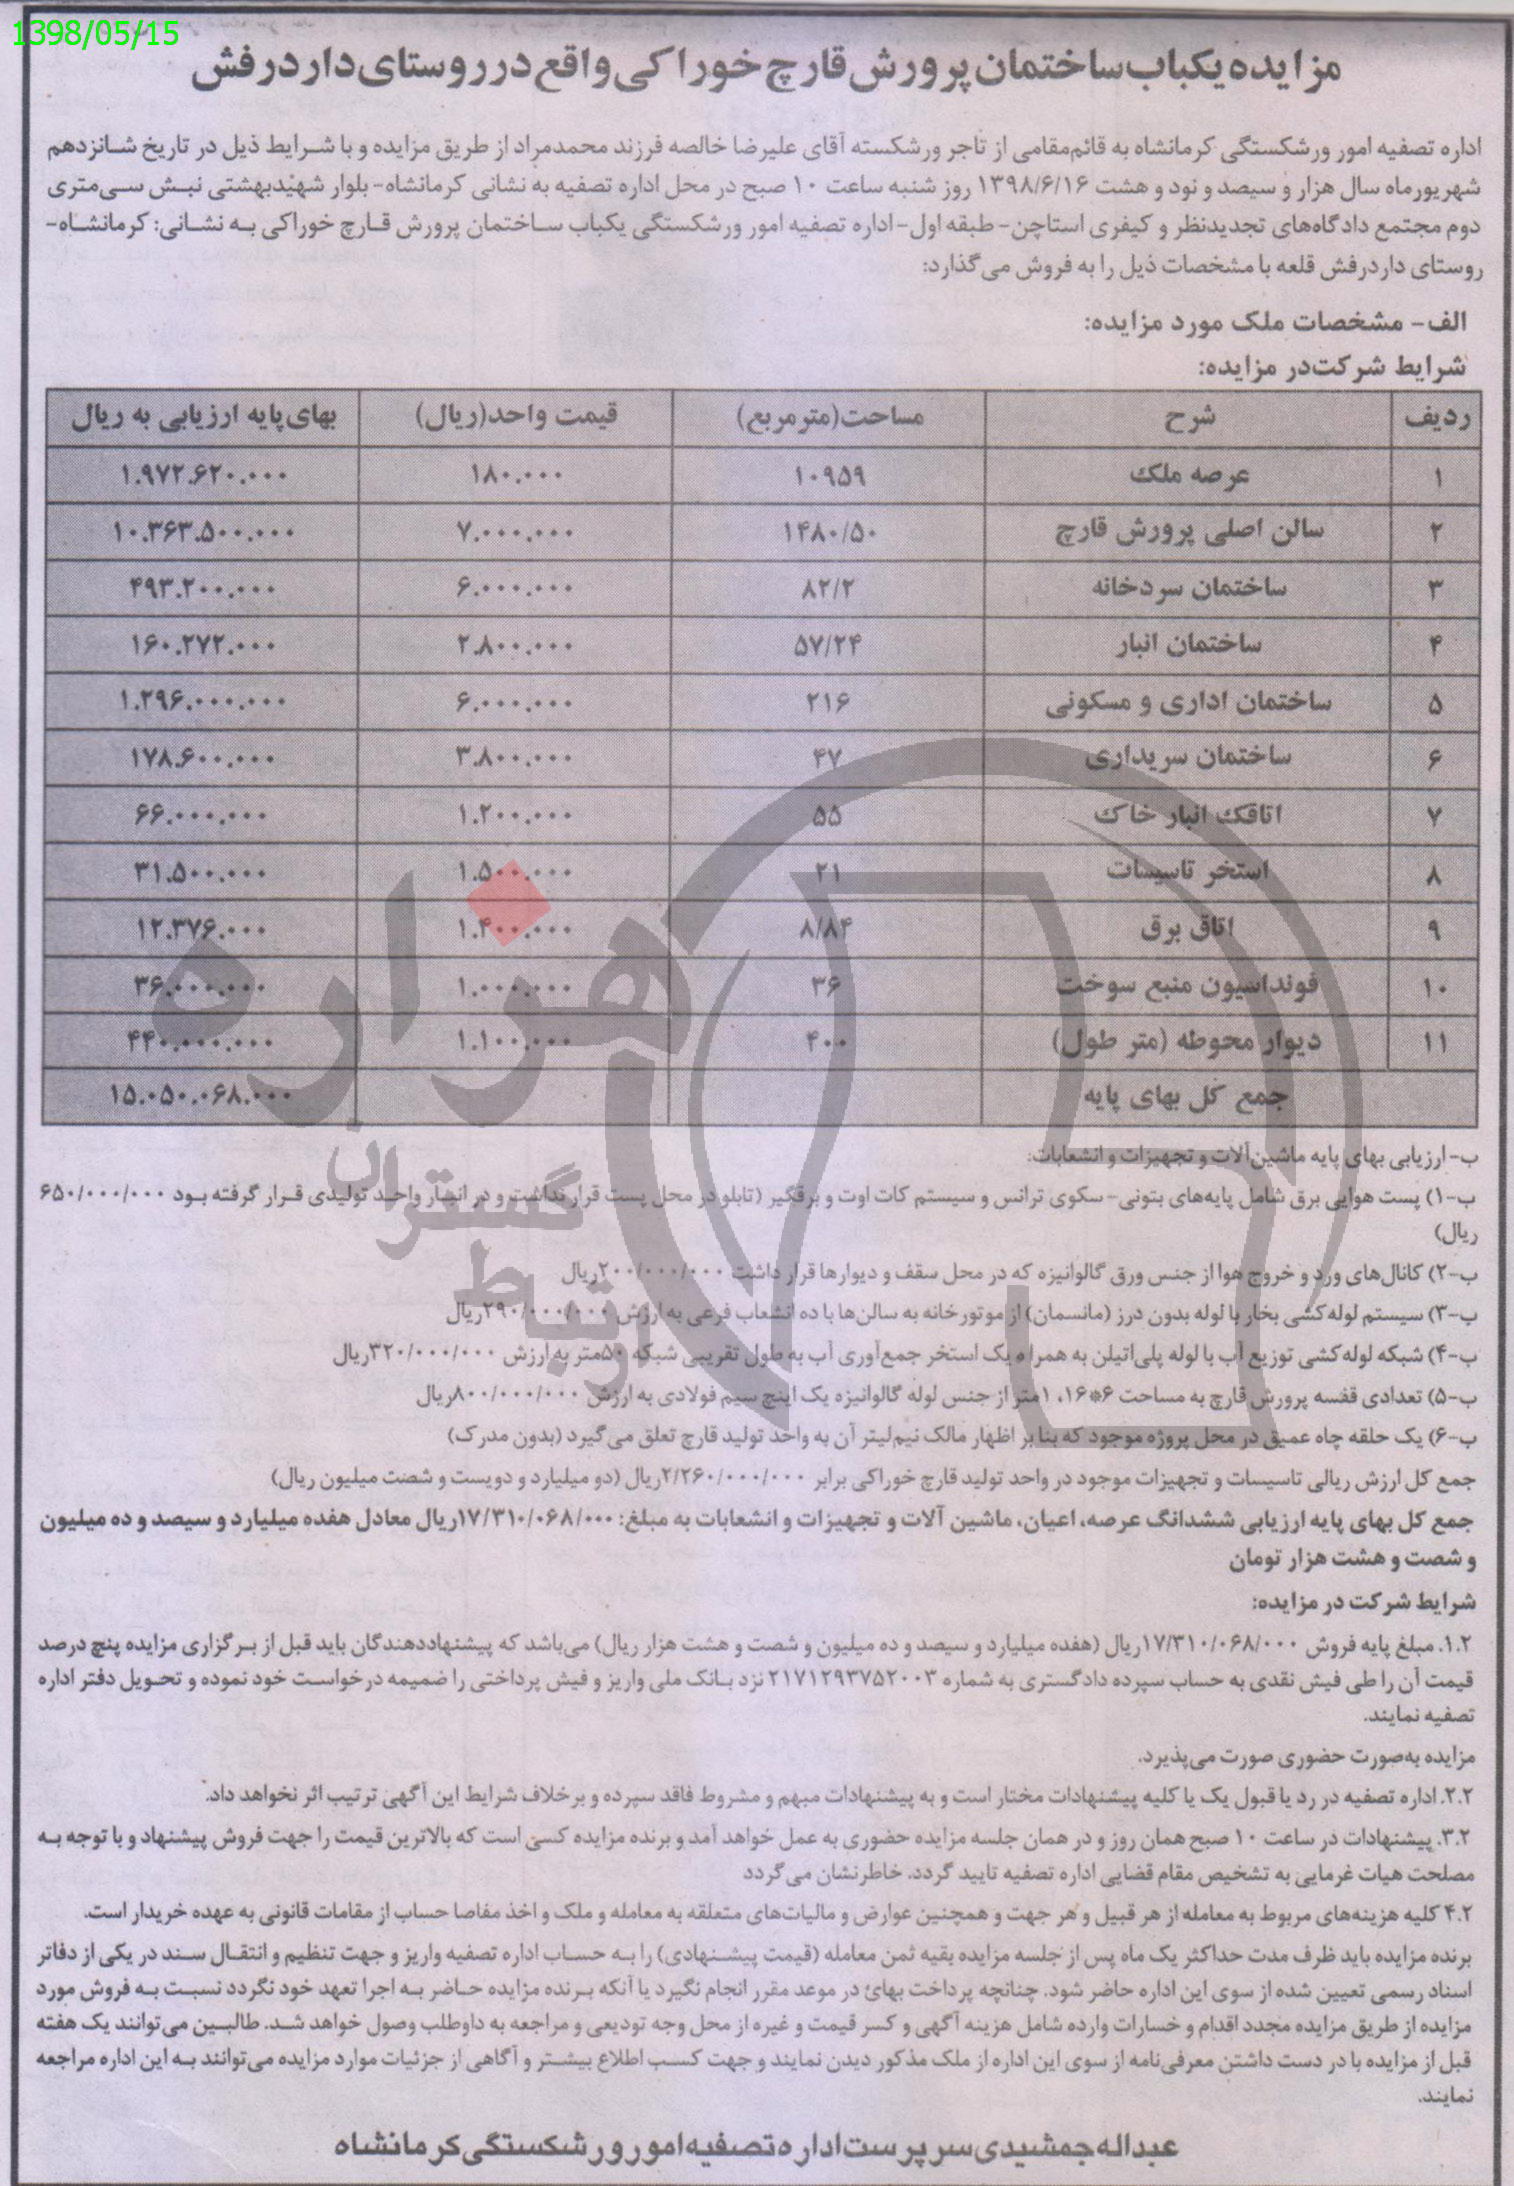 1398/05/15
مزایده یکباب ساختمان پرورش قارچ خوراکی واقع در روستای دار درفش
اداره تصفیه امور ورشکستگی کرمانشاه به قائم‌مقامی از تاجر ورشکسته آقای علیرضا خالصه فرزند محمدمراد از طریق مزایده و با شرایط ذیل در تاریخ شانزدهم
شهریورماه سال هزار و سیصد و نود و هشت ۱۳۹۸/۶/۱۶ روز شنبه ساعت ۱۰ صبح در محل اداره تصفیه به نشانی کرمانشاه- بلوار شهیدبهشتی نبش سی‌متری
دوم مجتمع دادگاه‌های تجدیدنظر و کیفری استاچن- طبقه اول- اداره تصفیه امور ورشکستگی یکباب ساختمان پرورش قارچ خوراکی به نشانی: کرمانشاه-
روستای داردرفش قلعه با مشخصات ذیل را به فروش می‌گذارد:
الف- مشخصات ملک مورد مزایده:
شرایط شرکت در مزایده:
ردیف شرح مساحت(مترمربع) قیمت واحد(ریال) بهای‌پایه ارزیابی به ریال
۱ عرصه ملک ۱۰۹۵۹ ۱۸۰.۰۰۰ ۱.۹۷۲.۶۲۰.۰۰۰
۲ سالن اصلی پرورش قارچ ۱۴۸۰/۵۰ ۷.۰۰۰.۰۰۰ ۱۰.۳۶۳.۵۰۰.۰۰۰
۳ ساختمان سردخانه ۸۲/۲ ۶.۰۰۰.۰۰۰ ۴۹۳.۲۰۰.۰۰۰
۴ ساختمان انبار ۵۷/۲۴ ۲.۸۰۰.۰۰۰ ۱۶۰.۲۷۲.۰۰۰
۵ ساختمان اداری و مسکونی ۲۱۶ ۶.۰۰۰.۰۰۰ ۱.۲۹۶.۰۰۰.۰۰۰
۶ ساختمان سریداری ۴۷ ۳.۸۰۰.۰۰۰ ۱۷۸.۶۰۰.۰۰۰
۷ اتاقک انبار خاک ۵۵ ۱.۲۰۰.۰۰۰ ۶۶.۰۰۰.۰۰۰
۸ استخر تاسیسات ۲۱ ۱.۵۰۰.۰۰۰ ۳۱.۵۰۰.۰۰۰
۹ اتاق برق ۸/۸۴ ۱.۴۰۰.۰۰۰ ۱۲.۳۷۶.۰۰۰
۱۰ فونداسیون منبع سوخت ۳۶ ۱.۰۰۰.۰۰۰ ۳۶.۰۰۰.۰۰۰
۱۱ دیوار محوطه (متر طول) ۴۰۰ ۱.۱۰۰.۰۰۰ ۴۴۰.۰۰۰.۰۰۰
جمع کل بهای پایه ۱۵.۰۵۰.۰۶۸.۰۰۰
هزاره
گستران
ارتباط
ب- ارزیابی بهای پایه ماشین‌آلات و تجهیزات و انشعابات:
ب-۱) پست هوایی برق شامل پایه‌های بتونی- سکوی ترانس و سیستم کات اوت و برقگیر (تابلو در محل پست قرار نداشت و در انبار واحد تولیدی قرار گرفته بود ۶۵۰/۰۰۰/۰۰۰
ریال)
ب-۲) کانال‌های ورد و خروج هوا از جنس ورق گالوانیزه که در محل سقف و دیوارها قرار داشت ۲۰۰/۰۰۰/۰۰۰ریال
ب-۳) سیستم لوله‌کشی بخار با لوله بدون درز (مانسمان) از موتورخانه به سالن‌ها با ده انشعاب فرعی به ارزش ۲۹۰/۰۰۰/۰۰۰ریال
ب-۴) شبکه لوله‌کشی توزیع آب با لوله پلی‌اتیلن به همراه یک استخر جمع‌آوری آب به طول تقریبی شبکه ۵۰متر به ارزش ۳۲۰/۰۰۰/۰۰۰ریال
ب-۵) تعدادی قفسه پرورش قارچ به مساحت ۶*۱۶، ۱متر از جنس لوله گالوانیزه یک اینچ سیم فولادی به ارزش ۸۰۰/۰۰۰/۰۰۰ریال
ب-۶) یک حلقه چاه عمیق در محل پروژه موجود که بنا بر اظهار مالک نیم‌لیتر آن به واحد تولید قارچ تعلق می‌گیرد (بدون مدرک)
جمع کل ارزش ریالی تاسیسات و تجهیزات موجود در واحد تولید قارچ خوراکی برابر ۲/۲۶۰/۰۰۰/۰۰۰ریال (دو میلیارد و دویست و شصت میلیون ریال)
جمع کل بهای پایه ارزیابی ششدانگ عرصه، اعیان، ماشین آلات و تجهیزات و انشعابات به مبلغ: ۱۷/۳۱۰/۰۶۸/۰۰۰ریال معادل هفده میلیارد و سیصد و ده میلیون
و شصت و هشت هزار تومان
شرایط شرکت در مزایده:
۱.۲. مبلغ پایه فروش ۱۷/۳۱۰/۰۶۸/۰۰۰ریال (هفده میلیارد و سیصد و ده میلیون و شصت و هشت هزار ریال) می‌باشد که پیشنهاددهندگان باید قبل از برگزاری مزایده پنج درصد
قیمت آن را طی فیش نقدی به حساب سپرده دادگستری به شماره ۲۱۷۱۲۹۳۷۵۲۰۰۳ نزد بانک ملی واریز و فیش پرداختی را ضمیمه درخواست خود نموده و تحویل دفتر اداره
تصفیه نمایند.
مزایده به‌صورت حضوری صورت می‌پذیرد.
۲.۲. اداره تصفیه در رد یا قبول یک یا کلیه پیشنهادات مختار است و به پیشنهادات مبهم و مشروط فاقد سپرده و برخلاف شرایط این آگهی ترتیب اثر نخواهد داد.
۳.۲. پیشنهادات در ساعت ۱۰ صبح همان روز و در همان جلسه مزایده حضوری به عمل خواهد آمد و برنده مزایده کسی است که بالاترین قیمت را جهت فروش پیشنهاد و با توجه به
مصلحت هیات غرمایی به تشخیص مقام قضایی اداره تصفیه تایید گردد. خاطرنشان می‌گردد
۴.۲ کلیه هزینه‌های مربوط به معامله از هر قبیل و هر جهت و همچنین عوارض و مالیات‌های متعلقه به معامله و ملک و اخذ مفاصا حساب از مقامات قانونی به عهده خریدار است.
برنده مزایده باید ظرف مدت حداکثر یک ماه پس از جلسه مزایده بقیه ثمن معامله (قیمت پیشنهادی) را به حساب اداره تصفیه واریز و جهت تنظیم و انتقال سند در یکی از دفاتر
اسناد رسمی تعیین شده از سوی این اداره حاضر شود. چنانچه پرداخت بهای در موعد مقرر انجام نگیرد یا آنکه برنده مزایده حاضر به اجرا تعهد خود نگردد نسبت به فروش مورد
مزایده از طریق مزایده مجدد اقدام و خسارات وارده شامل هزینه آگهی و کسر قیمت و غیره از محل وجه تودیعی و مراجعه به داوطلب وصول خواهد شد. طالبین می‌توانند یک هفته
قبل از مزایده با در دست داشتن معرفی‌نامه از سوی این اداره از ملک مذکور دیدن نمایند و جهت کسب اطلاع بیشتر و آگاهی از جزئیات موارد مزایده می‌توانند به این اداره مراجعه
نمایند.
عبداله جمشیدی سرپرست اداره تصفیه امور ورشکستگی کرمانشاه